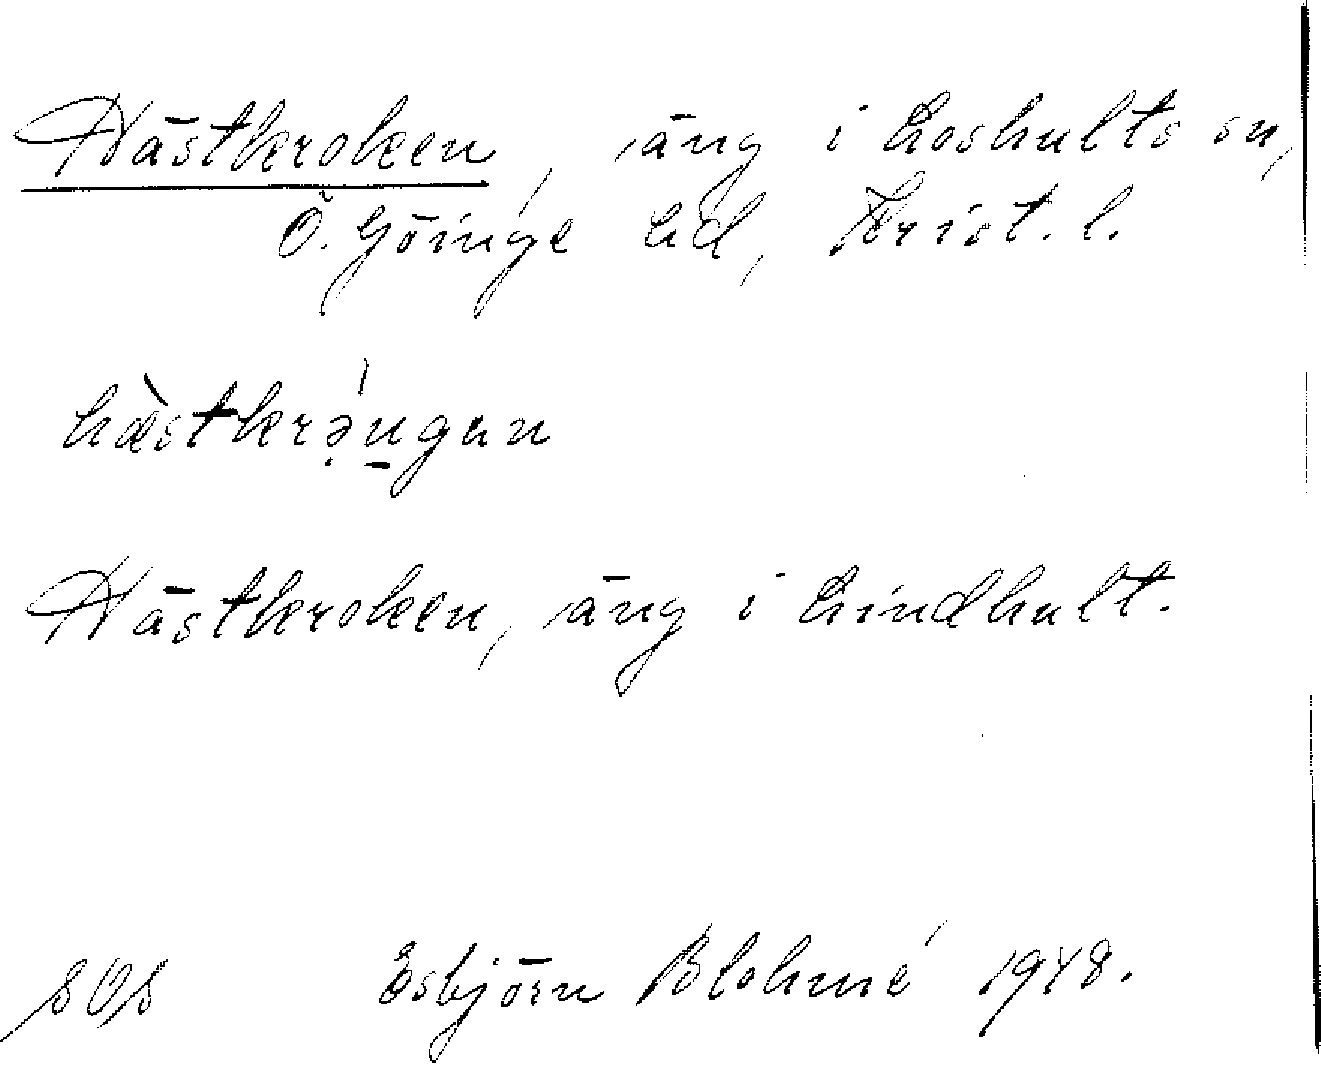 Hästkroken, äng i Loshults sn,
Ö. Göinge hd, Krist. l.
hæ̀stkrə̣́u̠gen
Hästkroken, äng i Lindhult.
SOS Esbjörn Blohmé 1948.